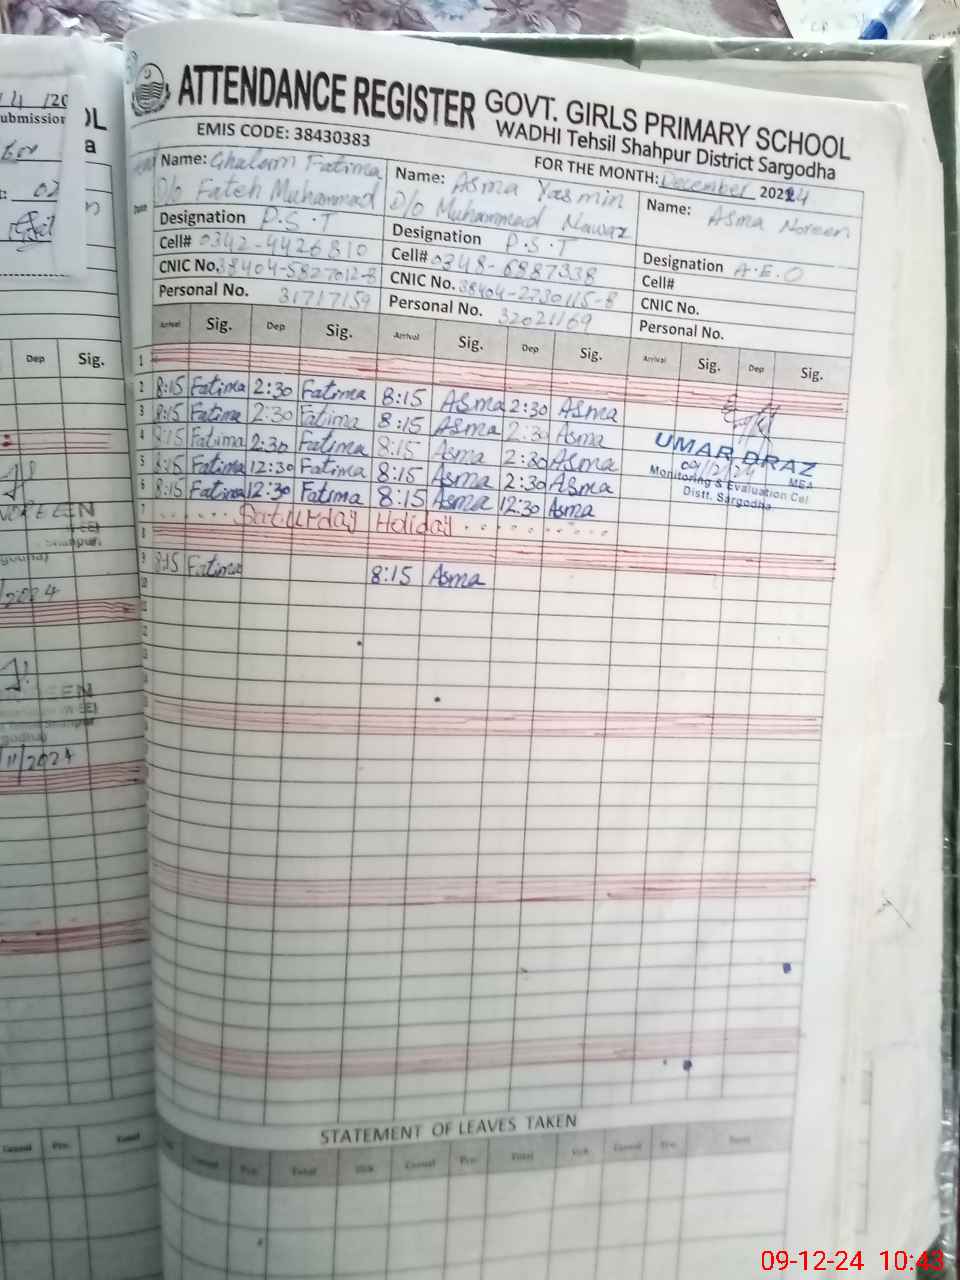 ATTENDANCE REGISTER GOVT. GIRLS PRIMARY SCHOOL
WADHI Tehsil Shahpur District Sargodha
EMIS CODE: 38430383
FOR THE MONTH: December 2024
Name: Ghulam Fatima
D/o Fateh Muhammad
Designation P.S.T
Cell# 0342-4426810
CNIC No. 38404-5827012-8
Personal No. 31717159
Name: Asma Yasmin
D/o Muhammad Nawaz
Designation P.S.T
Cell# 0348-6887338
CNIC No. 38404-2730115-8
Personal No. 32021169
Name: Asma Noreen
Designation A.E.O
Cell#
CNIC No.
Personal No.
Date Arrival Sig. Dep Sig. Arrival Sig. Dep Sig. Arrival Sig. Dep Sig.
1
2 8:15 Fatima 2:30 Fatima 8:15 Asma 2:30 Asma
3 8:15 Fatima 2:30 Fatima 8:15 Asma 2:30 Asma
4 8:15 Fatima 2:30 Fatima 8:15 Asma 2:30 Asma
5 8:15 Fatima 12:30 Fatima 8:15 Asma 2:30 Asma
6 8:15 Fatima 12:30 Fatima 8:15 Asma 12:30 Asma
7 Saturday Holiday
8
9 8:15 Fatima 8:15 Asma
10
11
12
13
UMAR DRAZ
09/12/24
MEA
Monitoring & Evaluation Cel
Distt. Sargodha
STATEMENT OF LEAVES TAKEN
Casual Total Sick Casual Total Sick Casual Total
Dep Sig.
/11/2024
09-12-24 10:43